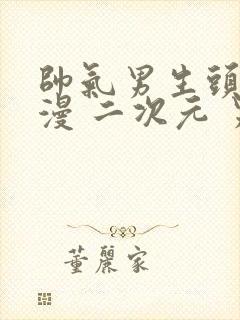 帥氣男生頭
漫 二次元
董麗家